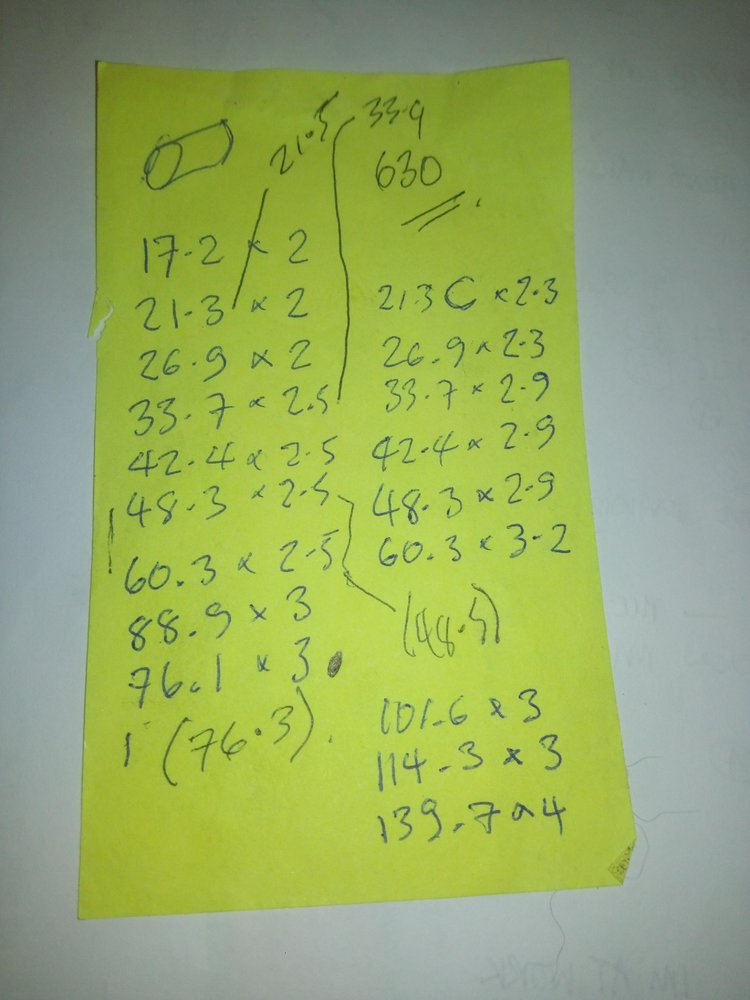 21.5
33.9
630
17.2 x 2
21.3 x 2
26.9 x 2
33.7 x 2.5
42.4 x 2.5
48.3 x 2.5
60.3 x 2.5
88.9 x 3
76.1 x 3
(76.3).
21.3 C x 2.3
26.9 x 2.3
33.7 x 2.9
42.4 x 2.9
48.3 x 2.9
60.3 x 3.2
(48.5)
101.6 x 3
114.3 x 3
139.7 x 4